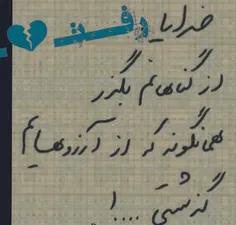 خدایا
رفت
از گناهانم بگزر
همانگونه که از آرزوهایم
گذشتی ....!